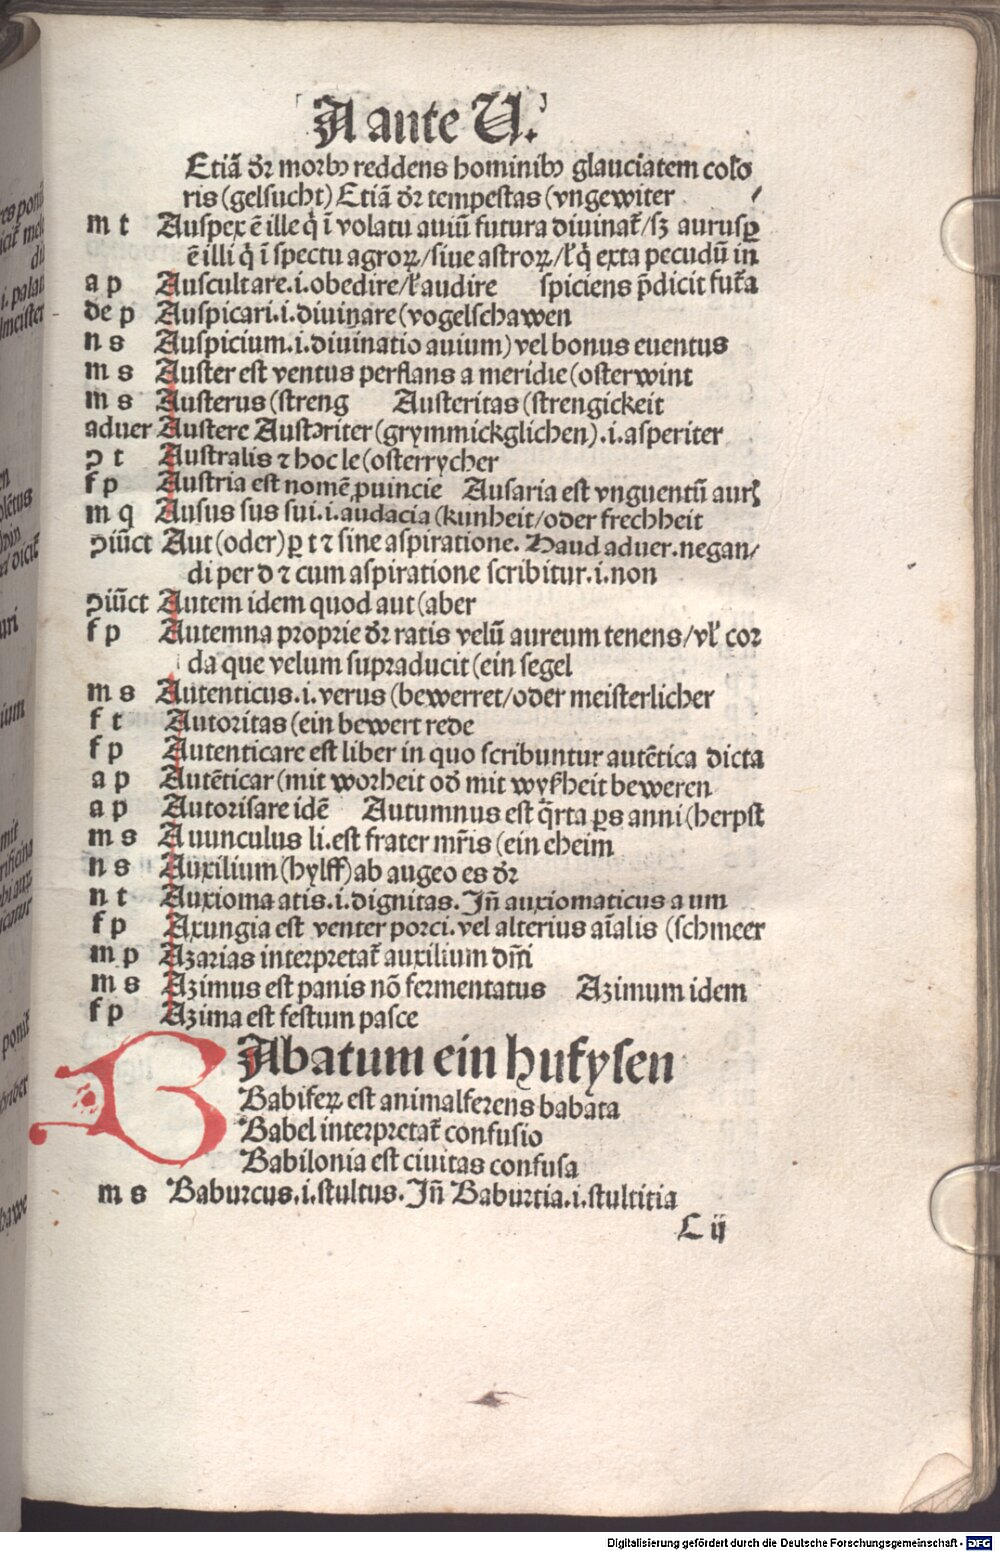 A ante U.
Etiã dr̃ morbꝰ reddens hominibꝰ glauciatem colo
ris (gelsucht) Etiã dr̃ tempestas (vngewiter /
m t Auspex ē ille q̇ ī volatu auiũ futura diuinat᷑/sꝫ aurusp̲
ē illi q̇ ī spectu agroꝝ/siue astroꝝ/ł q̇ exta pecudũ in
a p Auscultare.i.obedire/ł audire spiciens p̄dicit fut᷑a
de p Auspicari.i.diuinare (vogelschawen
n s Auspicium.i.diuinatio auium) vel bonus euentus
m s Auster est ventus perflans a meridie (osterwint
m s Austerus (streng Austeritas (strengickeit
aduer Austere Austeriter (grymmickglichen).i.asperiter
ꝯ t Australis ⁊ hoc le (osterrycher
f p Austria est nomē ꝓuincie Ausaria est vnguentũ aurꝭ
m q Ausus sus sui.i.audacia (kunheit/oder frechheit
ꝯiũct Aut (oder) ꝑ t ⁊ sine aspiratione. Haud aduer.negan/
di per d ⁊ cum aspiratione scribitur.i.non
ꝯiũct Autem idem quod aut (aber
f p Autemna proprie dr̃ ratis velũ aureum tenens/vł cor
da que velum supraducit (ein segel
m s Autenticus.i.verus (bewerret/oder meisterlicher
f t Autoritas (ein bewert rede
f p Autenticare est liber in quo scribuntur autētica dicta
a p Autēticar (mit worheit od̓ mit wyßheit beweren
a p Autorisare idē Autumnus est q̄rta ꝑs anni (herpst
m s Auunculus li.est frater mr̃is (ein eheim
n s Auxilium (hylff) ab augeo es dr̃
n t Auxioma atis.i.dignitas. Iñ auxiomaticus a um
f p Axungia est venter porci.vel alterius aīalis (schmeer
m p Azarias interpretat᷑ auxilium dm̃i
m s Azimus est panis nō fermentatus Azimum idem
f p Azima est festum pasce
BAbatum ein hufysen
Babifeꝝ est animal ferens babata
Babel interpretat᷑ confusio
Babilonia est ciuitas confusa
m s Baburcus.i.stultus. Iñ Baburtia.i.stultitia
C ij
Digitalisierung gefördert durch die Deutsche Forschungsgemeinschaft - DFG